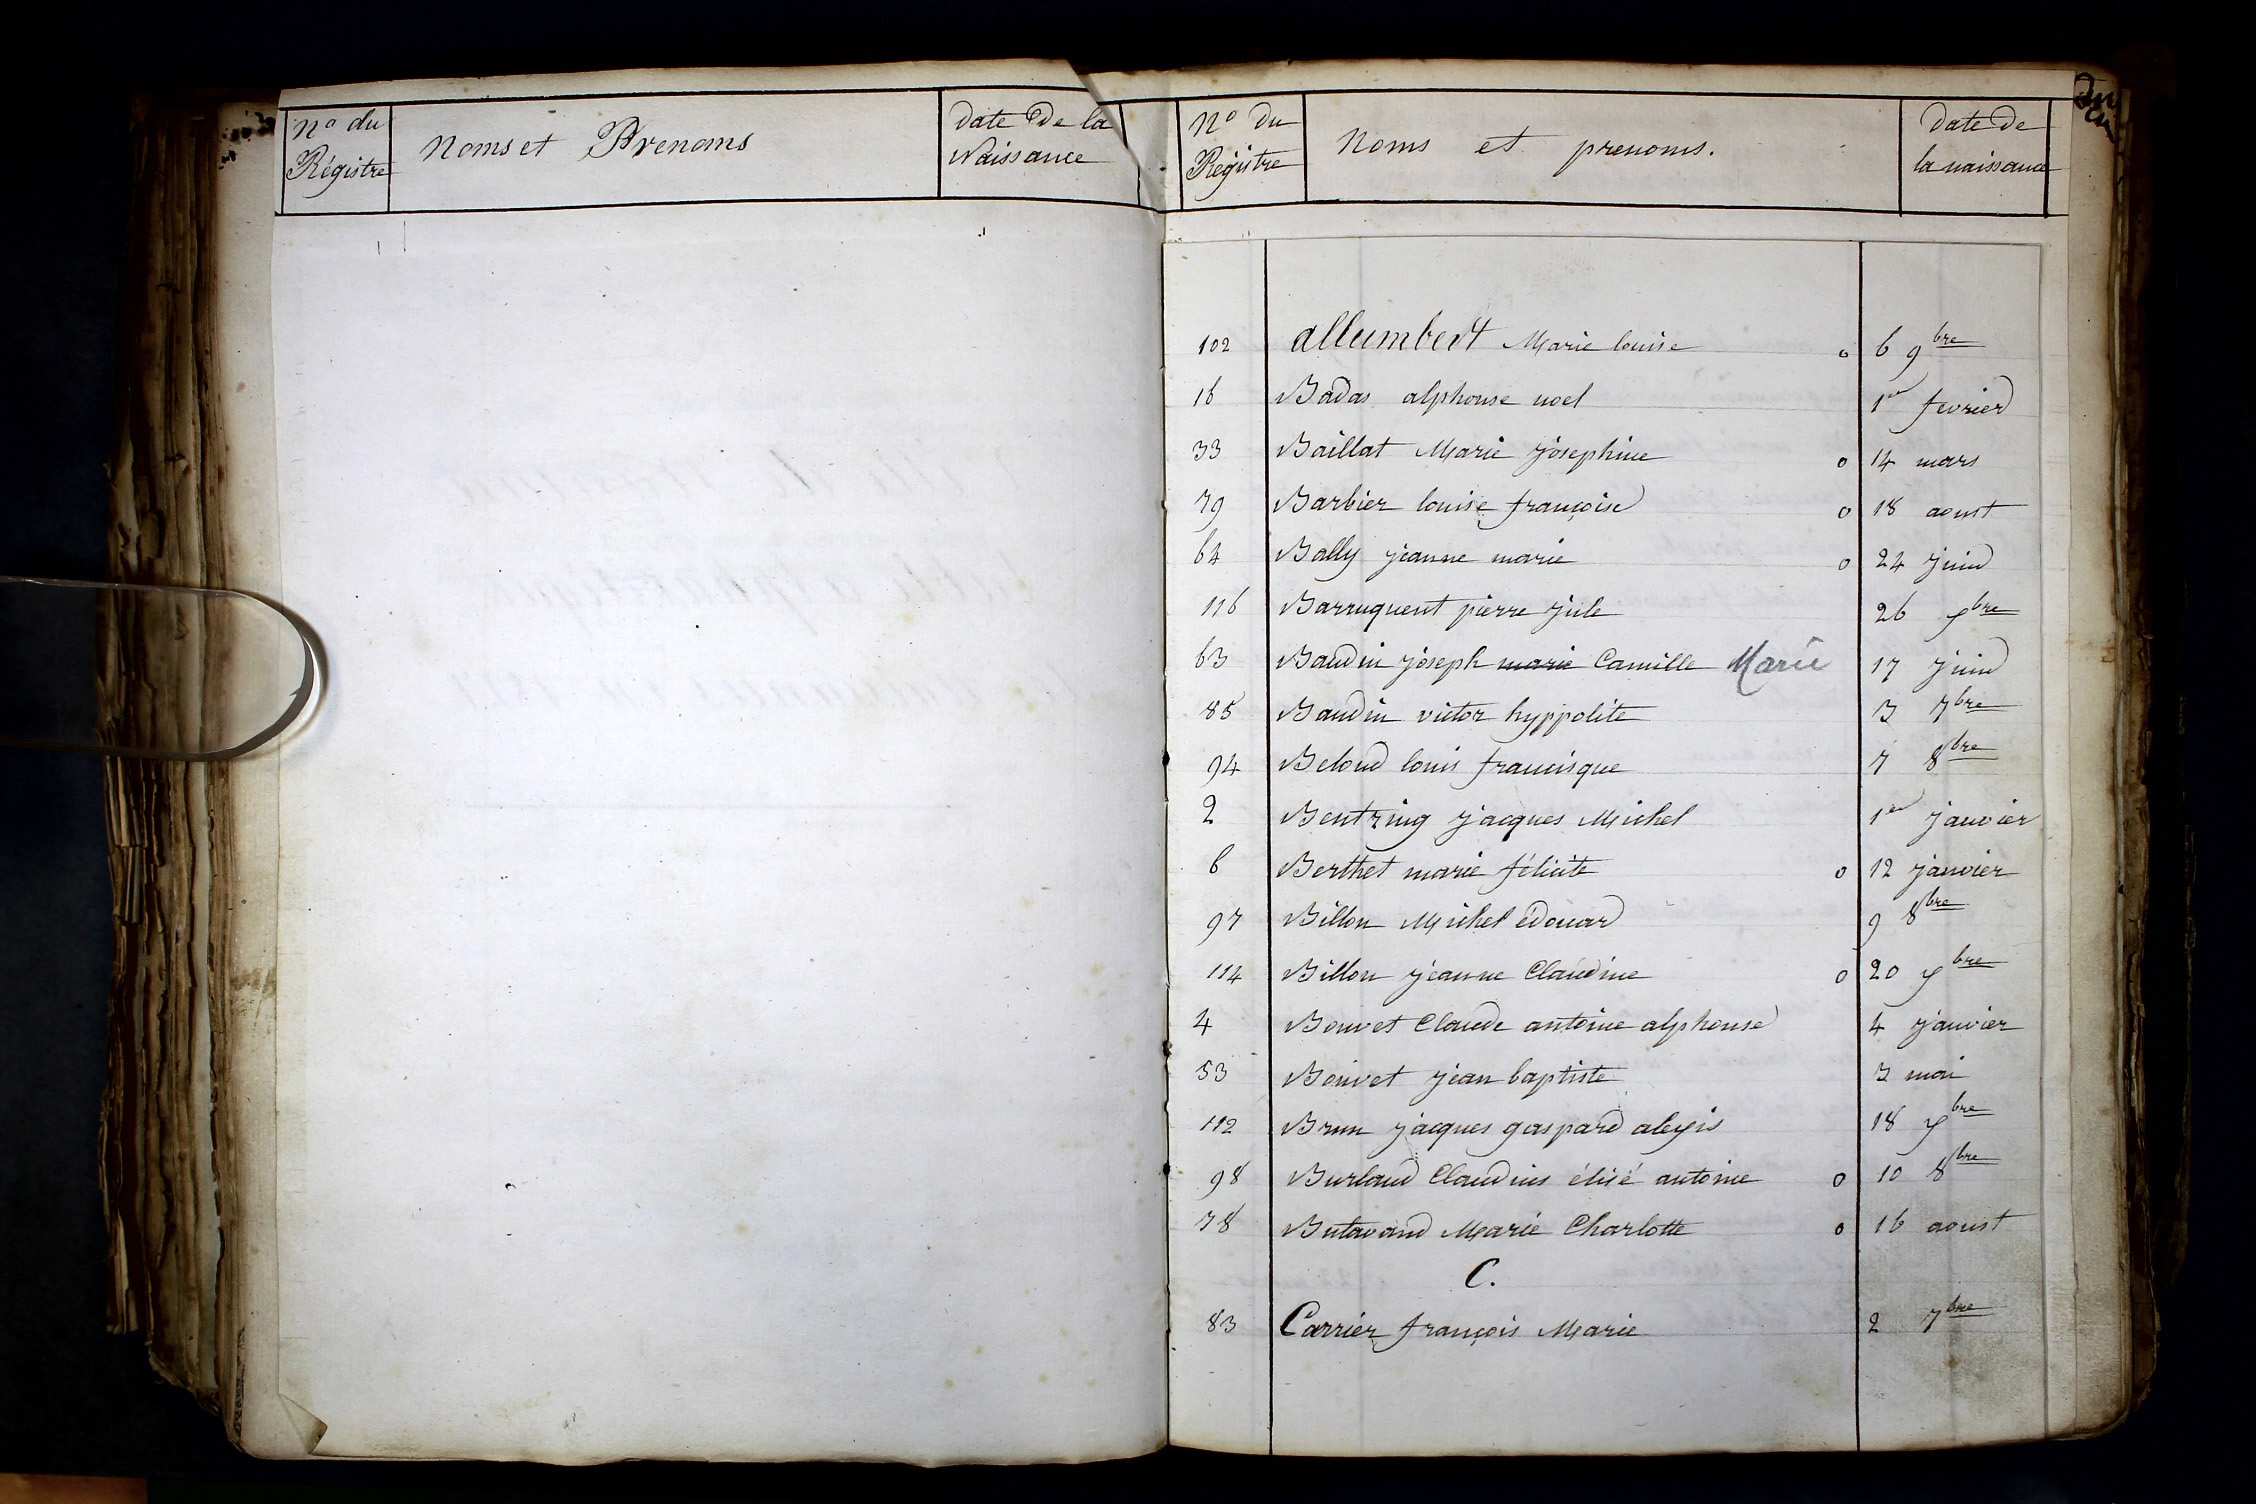 No du
Régistre
Noms et Prenoms
date de la
Naissance
No du
Régistre
Noms et prenoms.
date de
la naissance
102 allumbert Marie louise o 6 9bre
16 Badas alphonse noel 1er fevrier
33 Baillat Marie josephine o 14 mars
79 Barbier louise françoise o 18 aoust
64 Bally jeanne marie o 24 juin
116 Barruquent pierre jule 26 Xbre
63 Baudin joseph marie Camille Marie 17 juin
85 Baudin victor hyppolite 3 7bre
94 Beloud louis francisque 7 8bre
2 Bentzing jacques Michel 1er janvier
6 Berthet marie félicite o 12 janvier
97 Billon Michel édouard 9 8bre
114 Billon jeanne Claudine o 20 Xbre
4 Bouvet Claude antoine alphonse 4 janvier
53 Bouvet jean baptiste 3 mai
112 Brun jacques gaspard alexis 18 Xbre
98 Burland Claudius élisé antoine o 10 8bre
78 Butavand Marie Charlotte o 16 aoust
C.
83 Carrier françois Marie 2 7bre